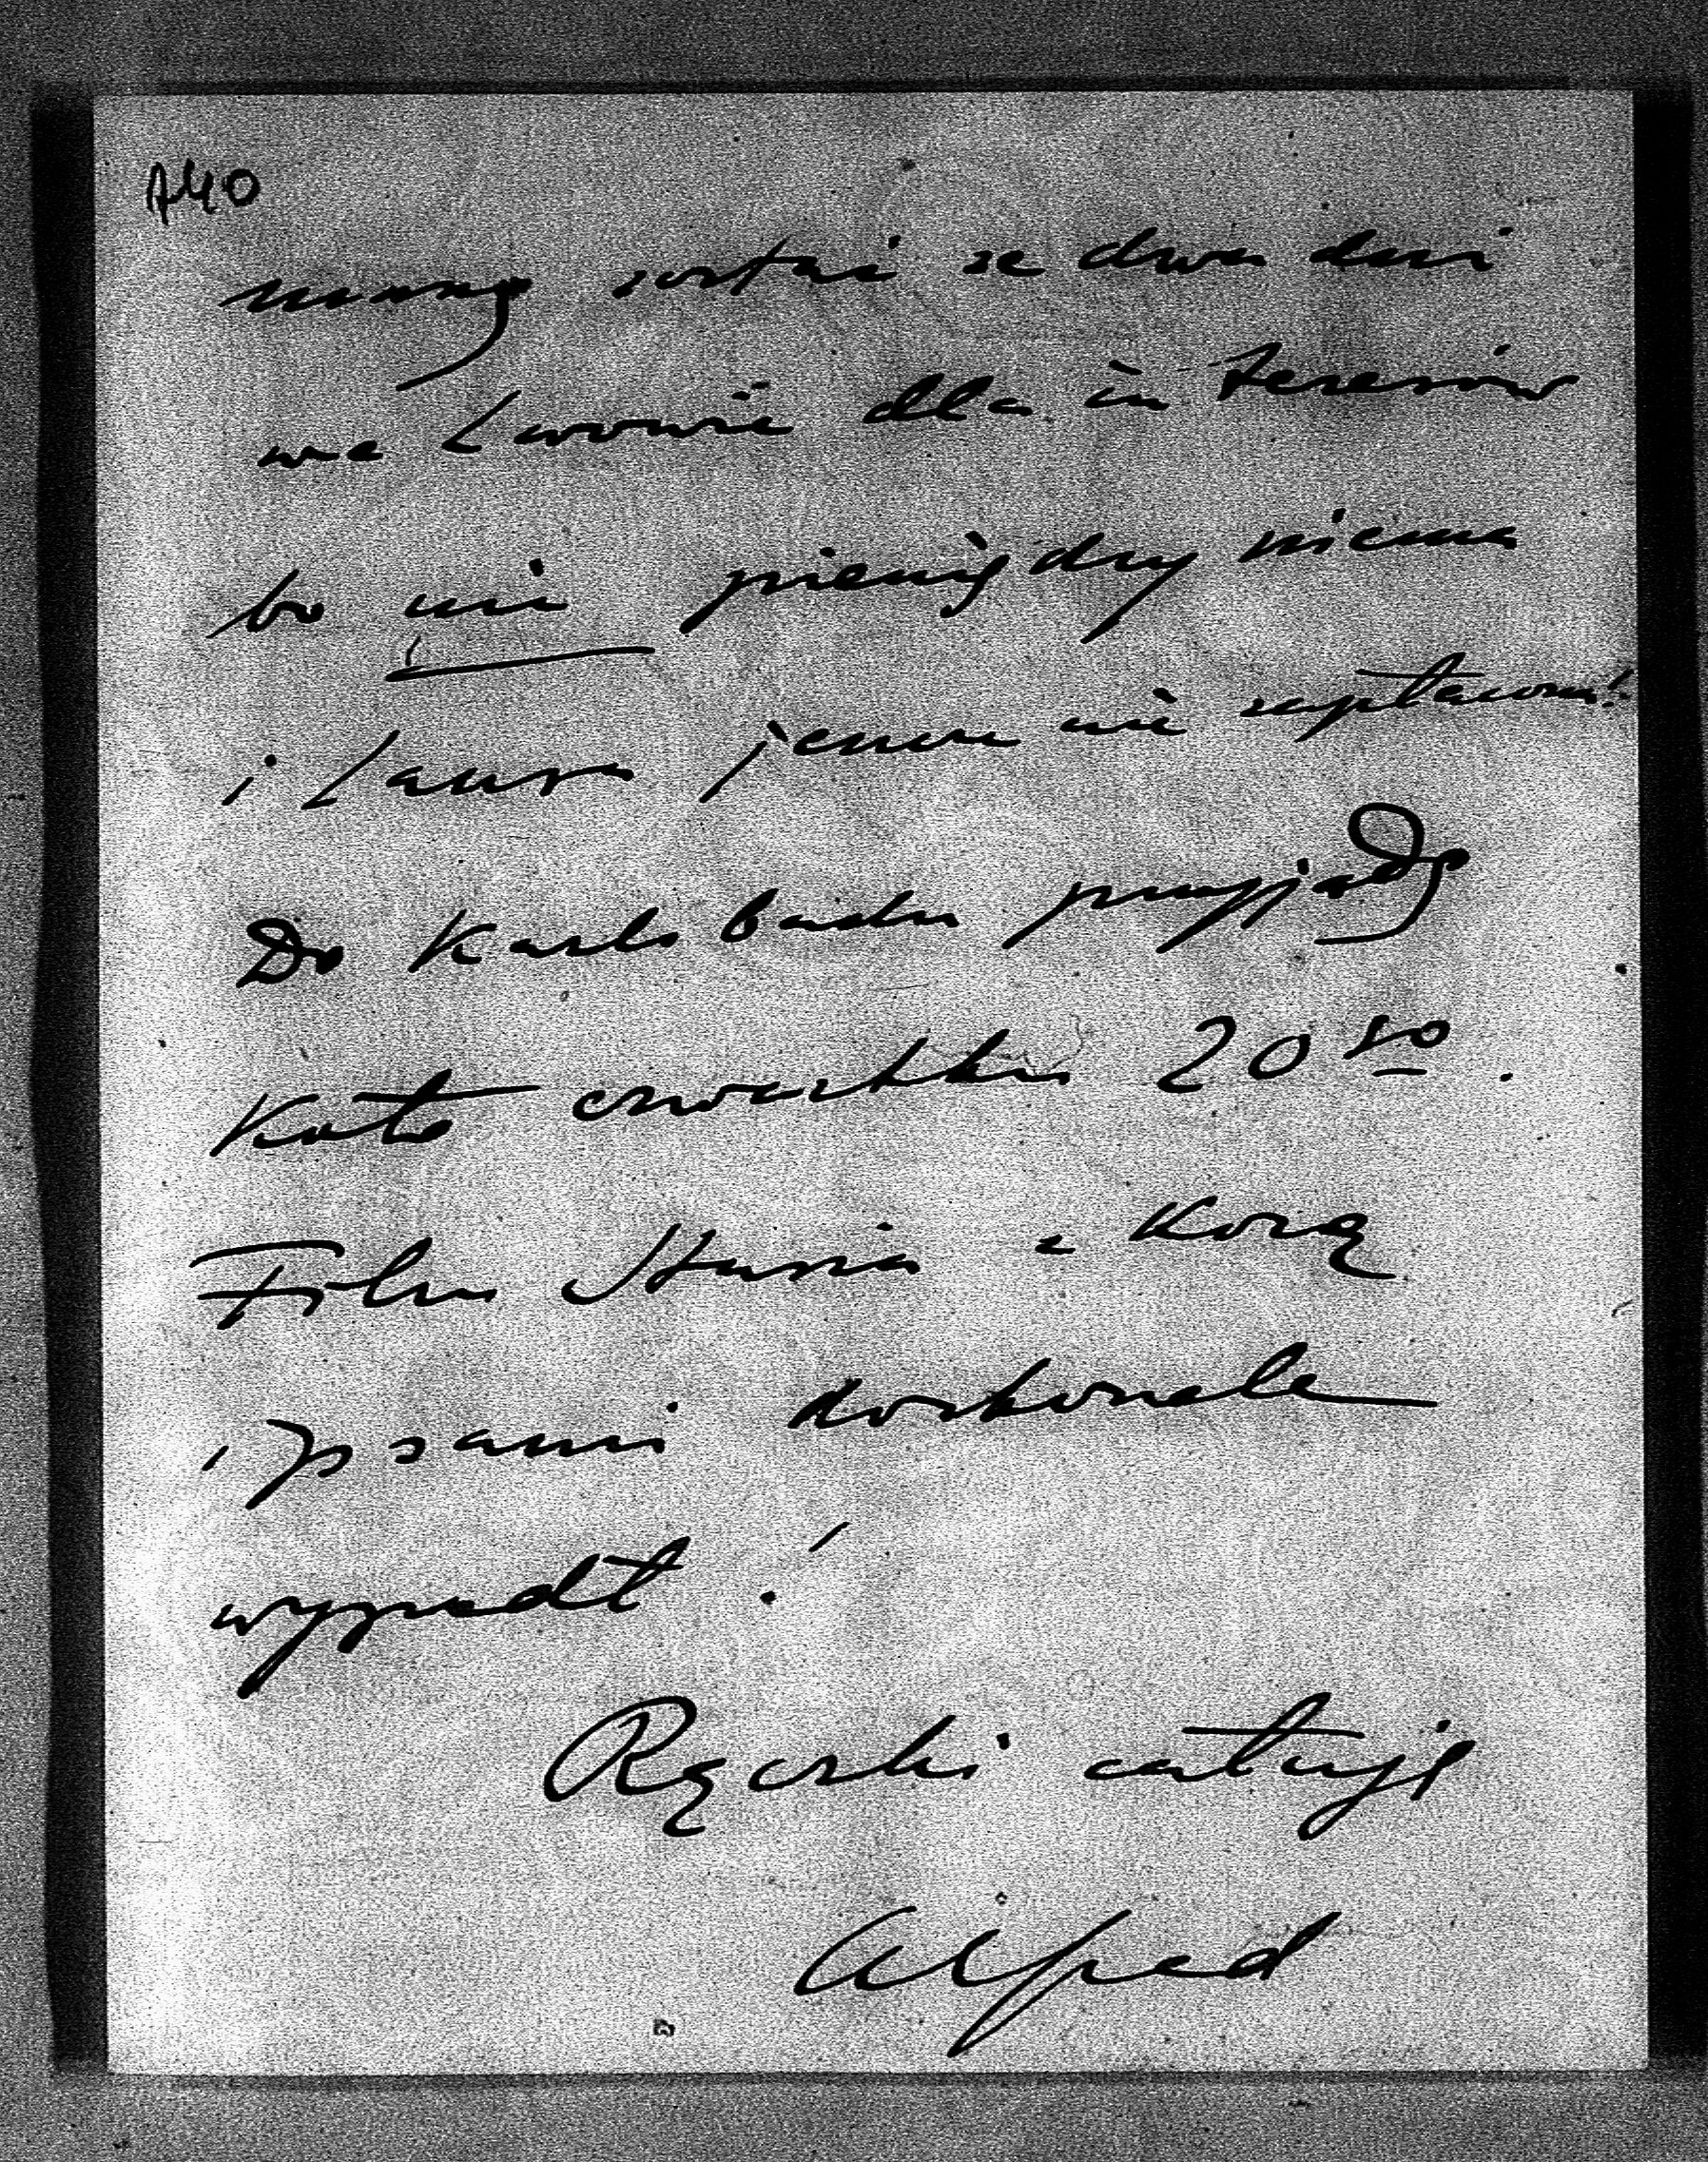 A40
muszę zostać ze dwa dni
we Lwowie dla interesów
bo mi pieniędzy niema
i Laura jeszcze nie zapłacona!
Do Karlsbadu przyjadę
koło czwartku 20go.
Film Stasia z Kozą
i psami doskonale
wypadł!
Rączki całuję
Alfred